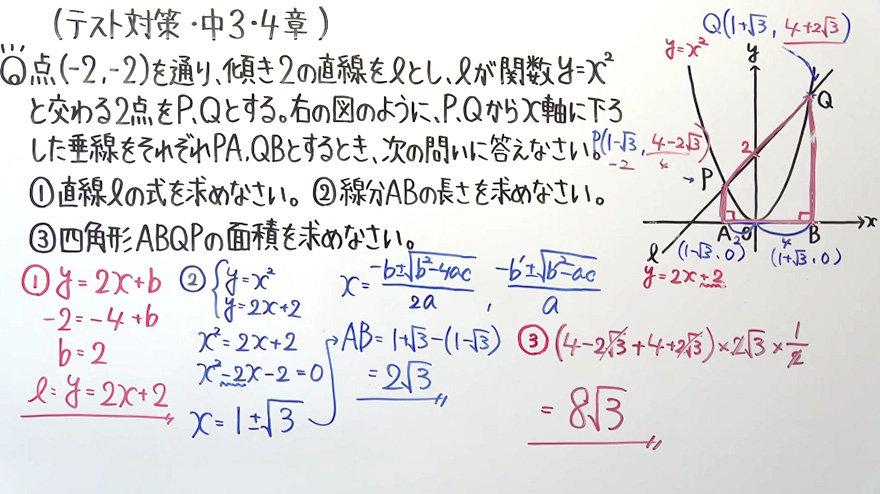 (テスト対策・中3・4章)
Q 点(-2,-2)を通り、傾き2の直線をℓとし、ℓが関数y=x²
と交わる2点をP、Qとする。右の図のように、P、Qからx軸に下ろ
した垂線をそれぞれPA、QBとするとき、次の問いに答えなさい。
①直線ℓの式を求めなさい。 ②線分ABの長さを求めなさい。
③四角形ABQPの面積を求めなさい。
① y=2x+b
-2=-4+b
b=2
ℓ=y=2x+2
② { y=x²
y=2x+2
x²=2x+2
x²-2x-2=0
x=1±√3
x= (-b±√(b²-4ac))/2a , (-b'±√(b'²-ac))/a
AB=1+√3-(1-√3)
=2√3
③ (4-2√3+4+2√3)×2√3×1/2
=8√3
Q(1+√3, 4+2√3)
y=x²
y
Q
P(1-√3, 4-2√3)
-2
4
2
→P
A O B x
2 4
ℓ (1-√3, 0) (1+√3, 0)
y=2x+2